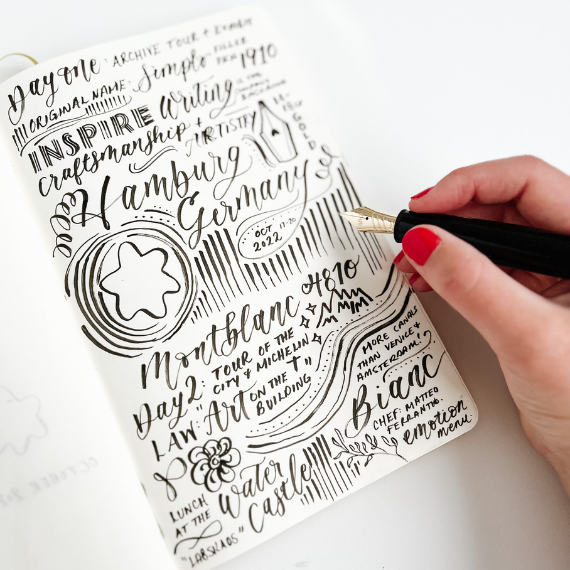 Day one: ARCHIVE TOUR + EXHIBIT
ORIGINAL NAME: Simplo FILLER PEN 1910
INSPIRE Writing
Craftsmanship + ARTISTRY
GOLD
Hamburg
Germany
OCT 17-20
2022
Montblanc H810
Day 2: TOUR OF THE
CITY & MICHELIN
LAW: "Art ON THE
BUILDING
MORE CANALS
THAN VENICE &
AMSTERDAM!
Bianc
CHEF: MATTEO
FERRANTINO
emotion
menu
LUNCH
AT THE
Water
Castle
"LABSKAUS"
OCTOBER